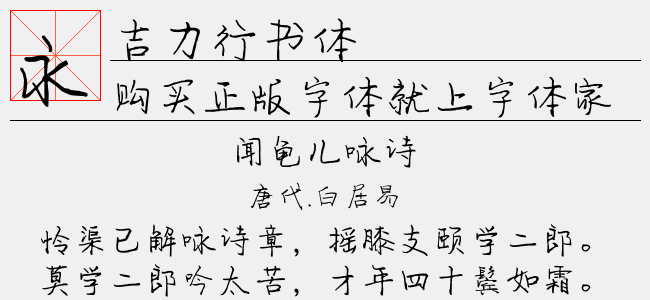 永
吉力行书体
购买正版字体就上字体家
闻龟儿咏诗
唐代.白居易
怜渠已解咏诗章，摇膝支颐学二郎。
莫学二郎吟太苦，才年四十鬓如霜。